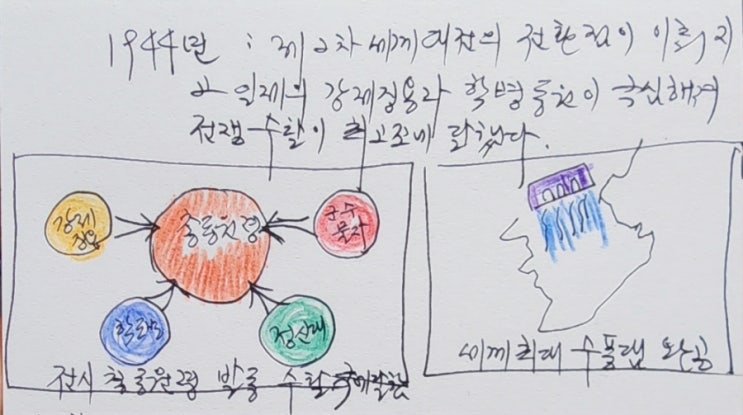 1944년 : 제2차 세계대전의 전환점이 이뤄지
고 일제의 강제징용과 학병동원이 극심해져
전쟁수탈이 최고조에 달했다.
강제
징용
총동원령
군수
물자
학병
정신대
전시 총동원령 발동 수탈
세계최대 수풍댐 완공